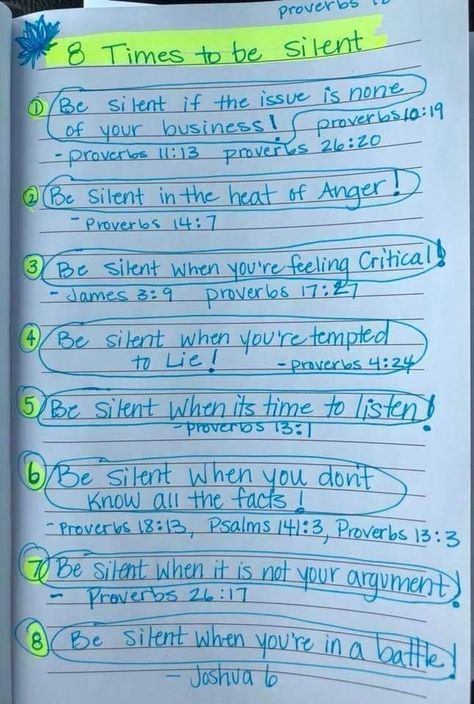 proverbs
8 Times to be Silent
① Be silent if the issue is none
of your business! proverbs 10:19
- proverbs 11:13 proverbs 26:20
② Be silent in the heat of Anger!
- Proverbs 14:7
③ Be silent when you're feeling Critical!
- James 3:9 proverbs 17:27
④ Be silent when you're tempted
to Lie! - proverbs 4:24
⑤ Be silent when its time to listen!
- proverbs 13:1
⑥ Be silent when you don't
know all the facts!
- Proverbs 18:13, Psalms 141:3, Proverbs 13:3
⑦ Be silent when it is not your argument!
- Proverbs 26:17
⑧ Be silent when you're in a battle!
- Joshua 6